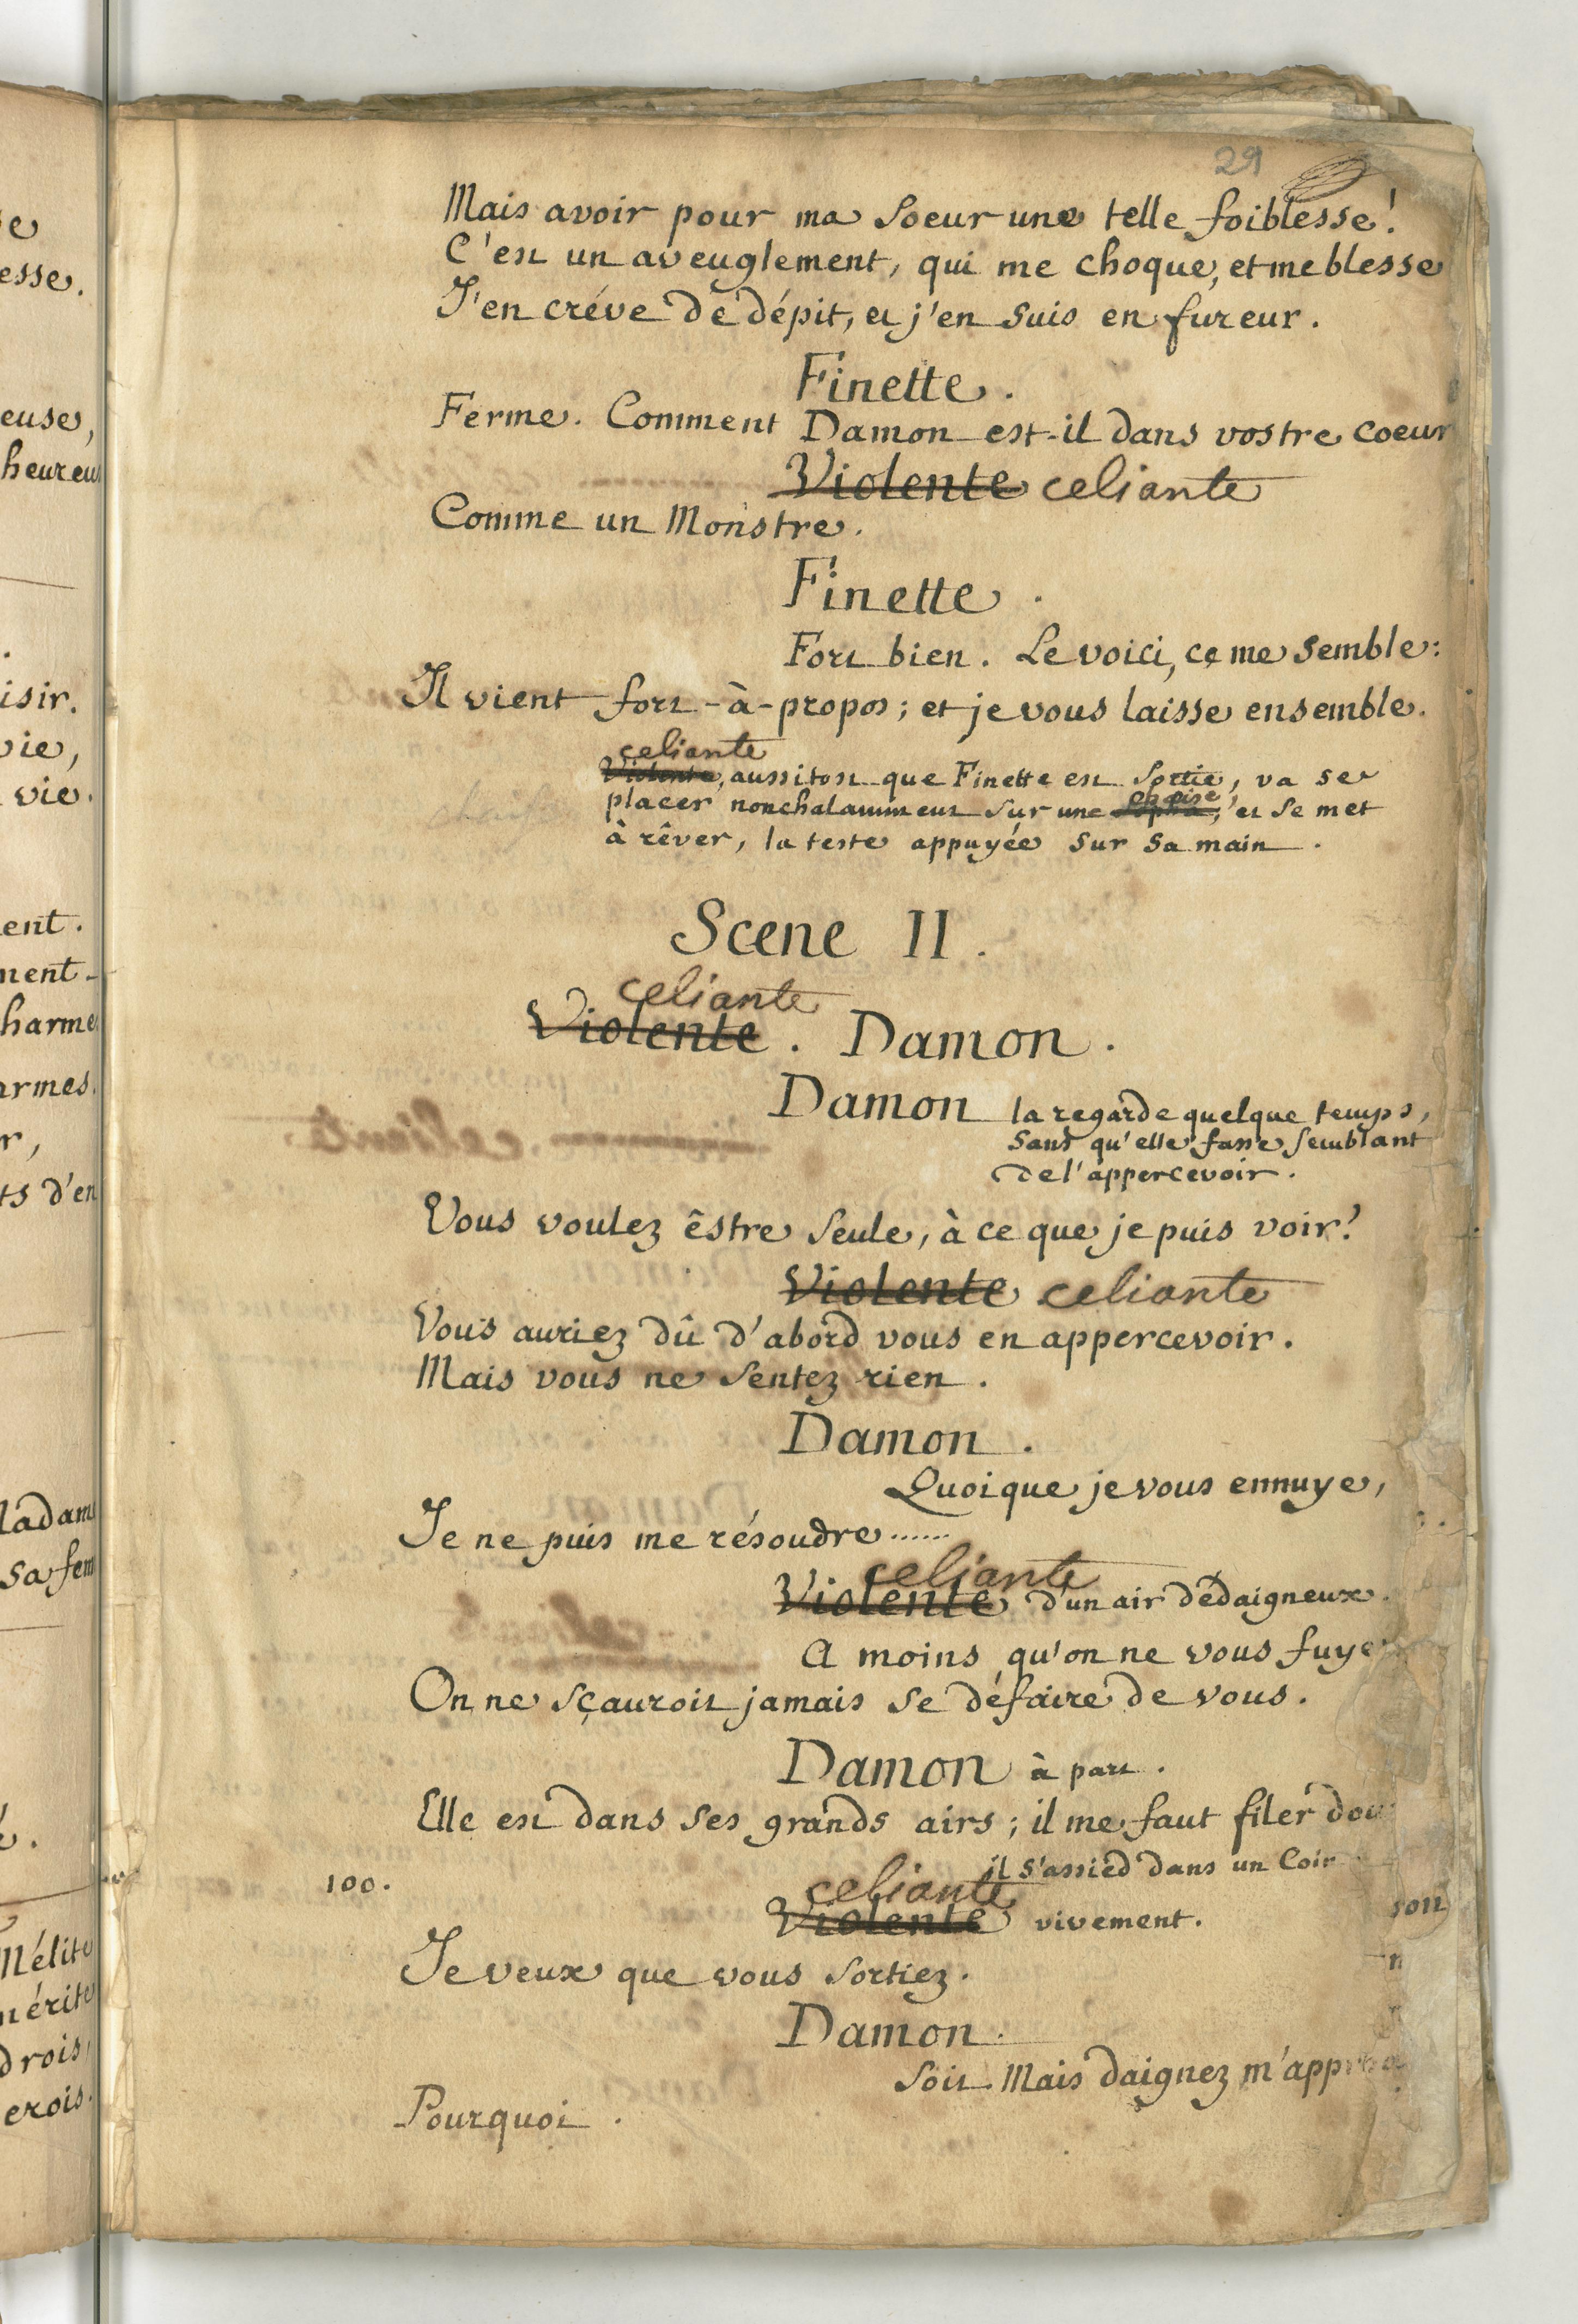 29
Mais avoir pour ma Soeur une telle foiblesse!
C'est un aveuglement, qui me choque, et me blesse
J'en créve de dépit, et j'en suis en fureur.
Finette.
Ferme. Comment Damon est-il dans vostre coeur
Violente celiante
Comme un Monstre.
Finette.
Fort bien. Le voici, ce me semble:
Il vient fort-à-propos; et je vous laisse ensemble.
celiante
Violente, aussitost que Finette est sortie, va se
chaise
placer nonchalamment sur une sopha, et se met
à rêver, la teste appuyée sur sa main.
Scene II.
celiante
Violente. Damon.
Damon la regarde quelque temps,
sans qu'elle fasse semblant
de l'appercevoir.
Vous voulez êstre seule, à ce que je puis voir?
Violente celiante
Vous auriez dû d'abord vous en appercevoir.
Mais vous ne sentez rien.
Damon.
Quoique je vous ennuye,
Je ne puis me résoudre......
celiante
Violente d'un air dédaigneux.
A moins qu'on ne vous fuye
On ne sçauroit jamais se défaire de vous.
Damon à part.
Elle est dans ses grands airs; il me faut filer dou
il s'assied dans un Coin
100.
celiante
Violente vivement.
Je veux que vous sortiez.
Damon.
Soit. Mais daignez
Pourquoi.
e
esse.
euse,
heureu
isir.
vie,
vie.
ent.
ment
harme
armes.
r,
ts d'en
Madam
sa fem
Mélite
mérite
drois,
erois.
son